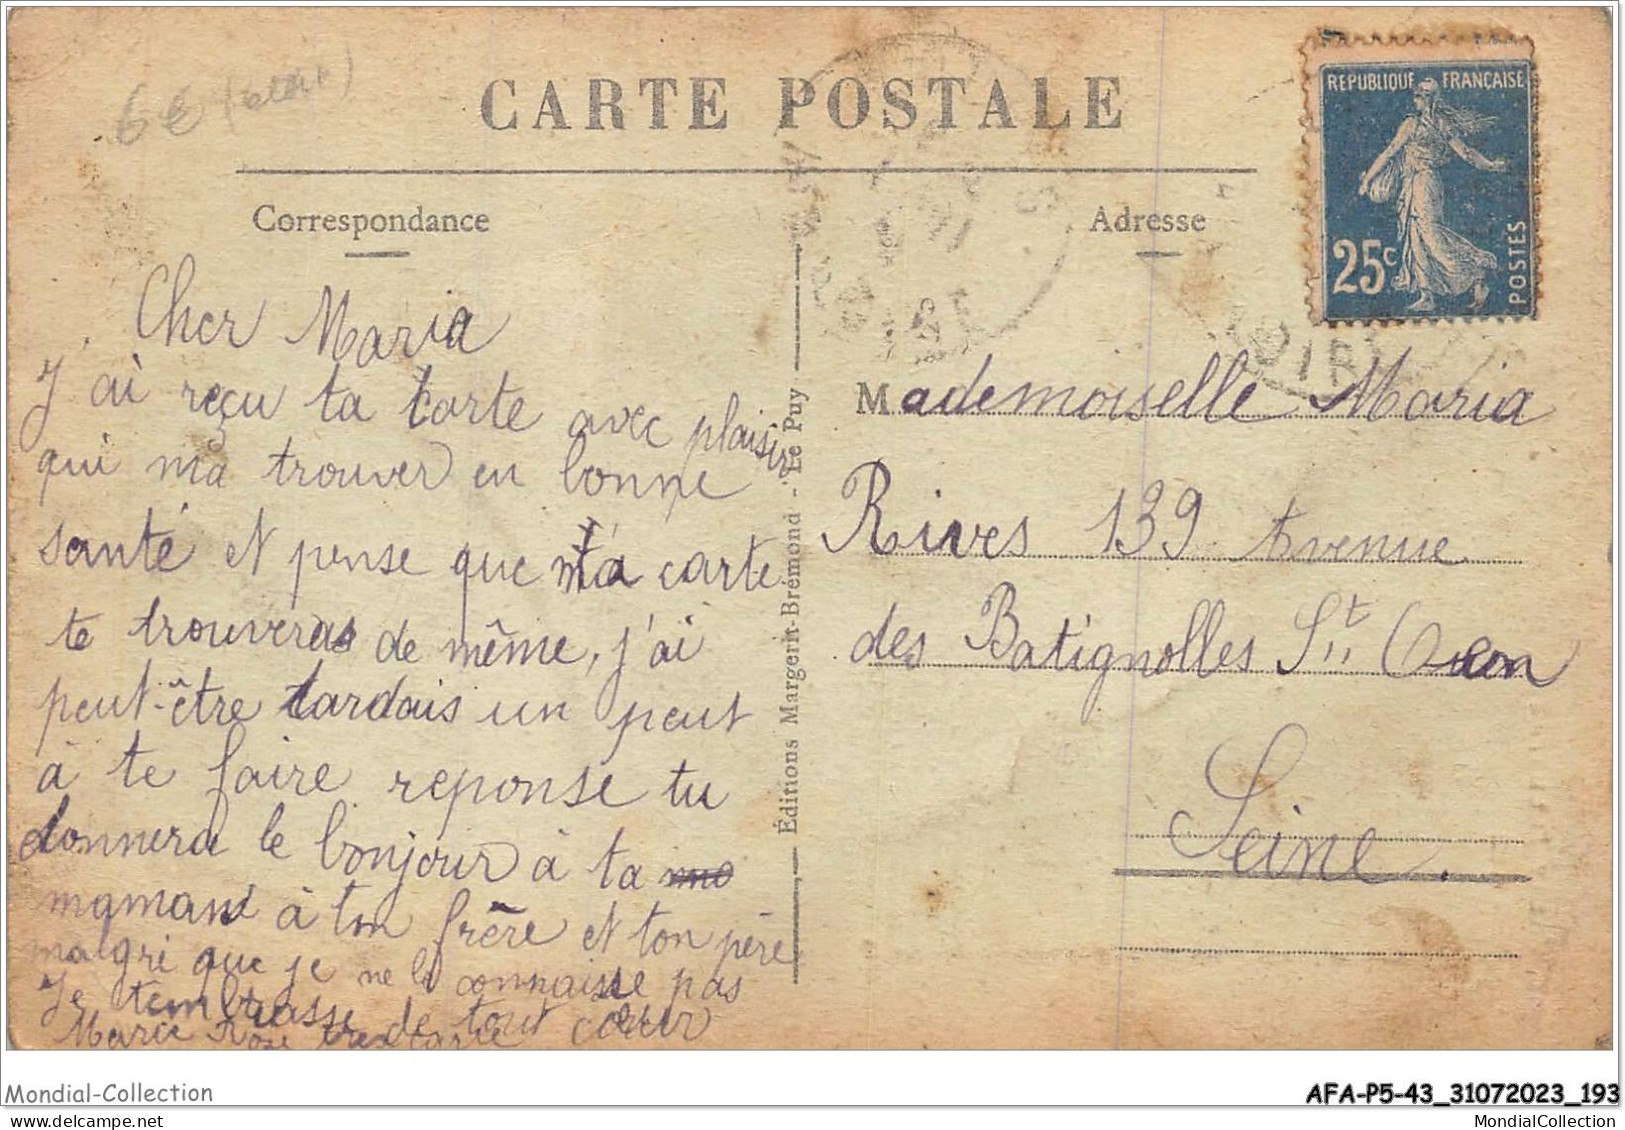 6€
CARTE POSTALE
REPUBLIQUE FRANÇAISE
25c
POSTES
Correspondance
Adresse
Cher Maria
J'ai reçu ta carte avec plaisir
qui ma trouver en bonne
santé et pense que ta carte
te trouveras de même, j'ai
peut-être tardais un peut
à te faire reponse tu
donnera le bonjour à ta
maman à ton frère et ton père
malgré que je ne le connaisse pas
Je tembrasse de tout cœur
Marie Rose
Éditions Margerit-Brémond - Le Puy
Mademoiselle Maria
Rives 139 Avenue
des Batignolles St Ouen
Seine.
Mondial-Collection
AFA-P5-43_31072023_193
MondialCollection
www.delcampe.net